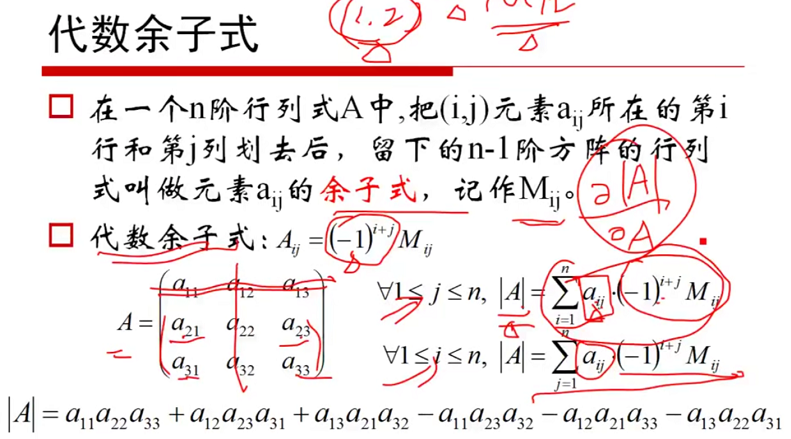 (1,2) Δ
代数余子式
在一个n阶行列式A中,把(i,j)元素aij所在的第i
行和第j列划去后，留下的n-1阶方阵的行列
式叫做元素aij的余子式，记作Mij。
∂|A| / ∂A
代数余子式: Aij = (-1)^{i+j} Mij
A = (a11 a12 a13
a21 a22 a23
a31 a32 a33)
∀1 ≤ j ≤ n, |A| = ∑_{i=1}^{n} aij·(-1)^{i+j} Mij
∀1 ≤ i ≤ n, |A| = ∑_{j=1}^{n} aij·(-1)^{i+j} Mij
|A| = a11a22a33 + a12a23a31 + a13a21a32 − a11a23a32 − a12a21a33 − a13a22a31